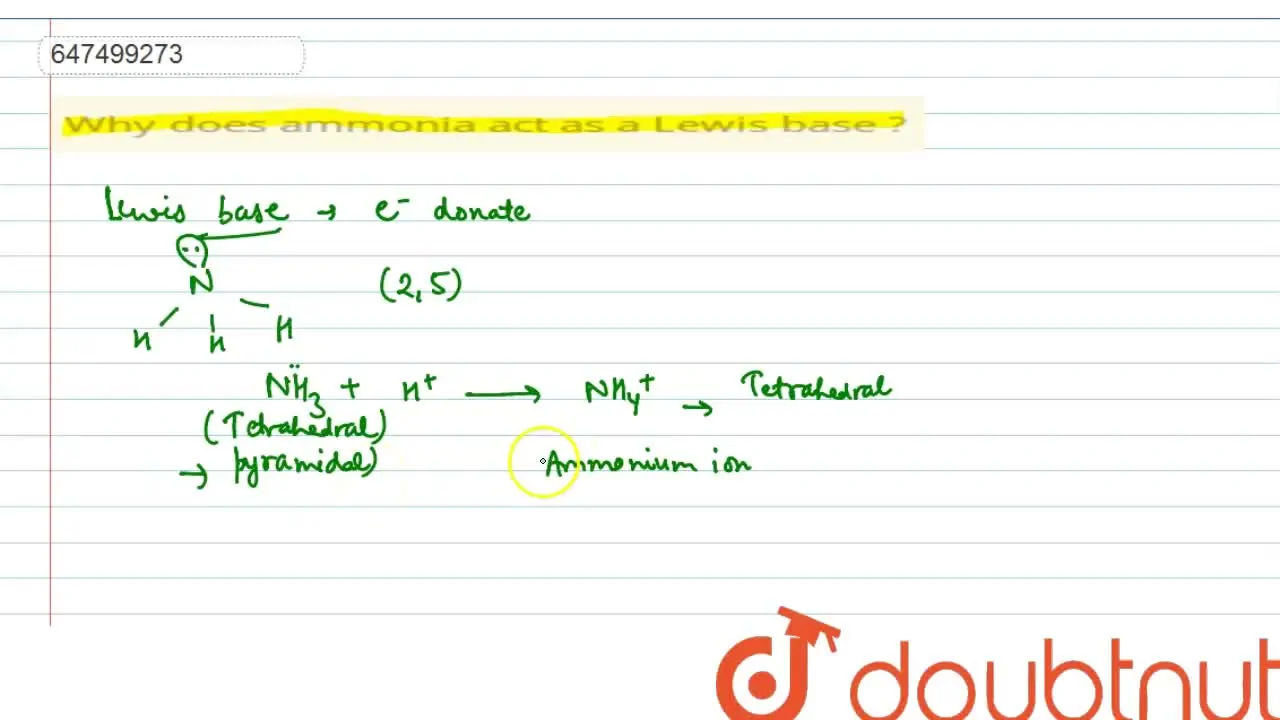 647499273
Why does ammonia act as a Lewis base ?
Lewis base → e⁻ donate
··
N (2,5)
H H H
N̈H₃ + H⁺ ⟶ NH₄⁺ → Tetrahedral
(Tetrahedral)
→ pyramidal) Ammonium ion
doubtnut